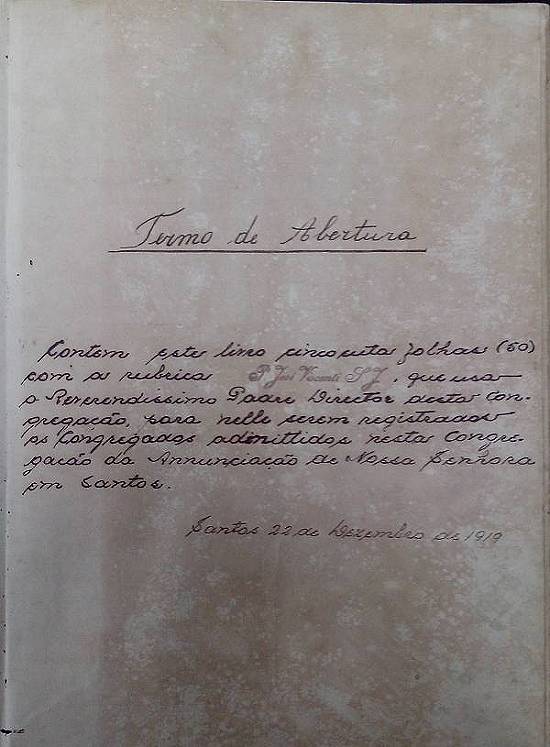 Termo de Abertura
Contem este livro cincoenta folhas (50)
com a rubrica P. José Visconti S.J., que usa
o Reverendissimo Padre Director desta Con-
gregação, para nelle serem registrados
os Congregados admittidos nesta Congre-
gação da Annunciação de Nossa Senhora
em Santos.
Santos 22 de Dezembro de 1919